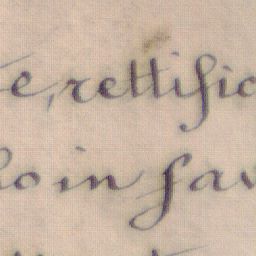 e, rettific
ho in fav